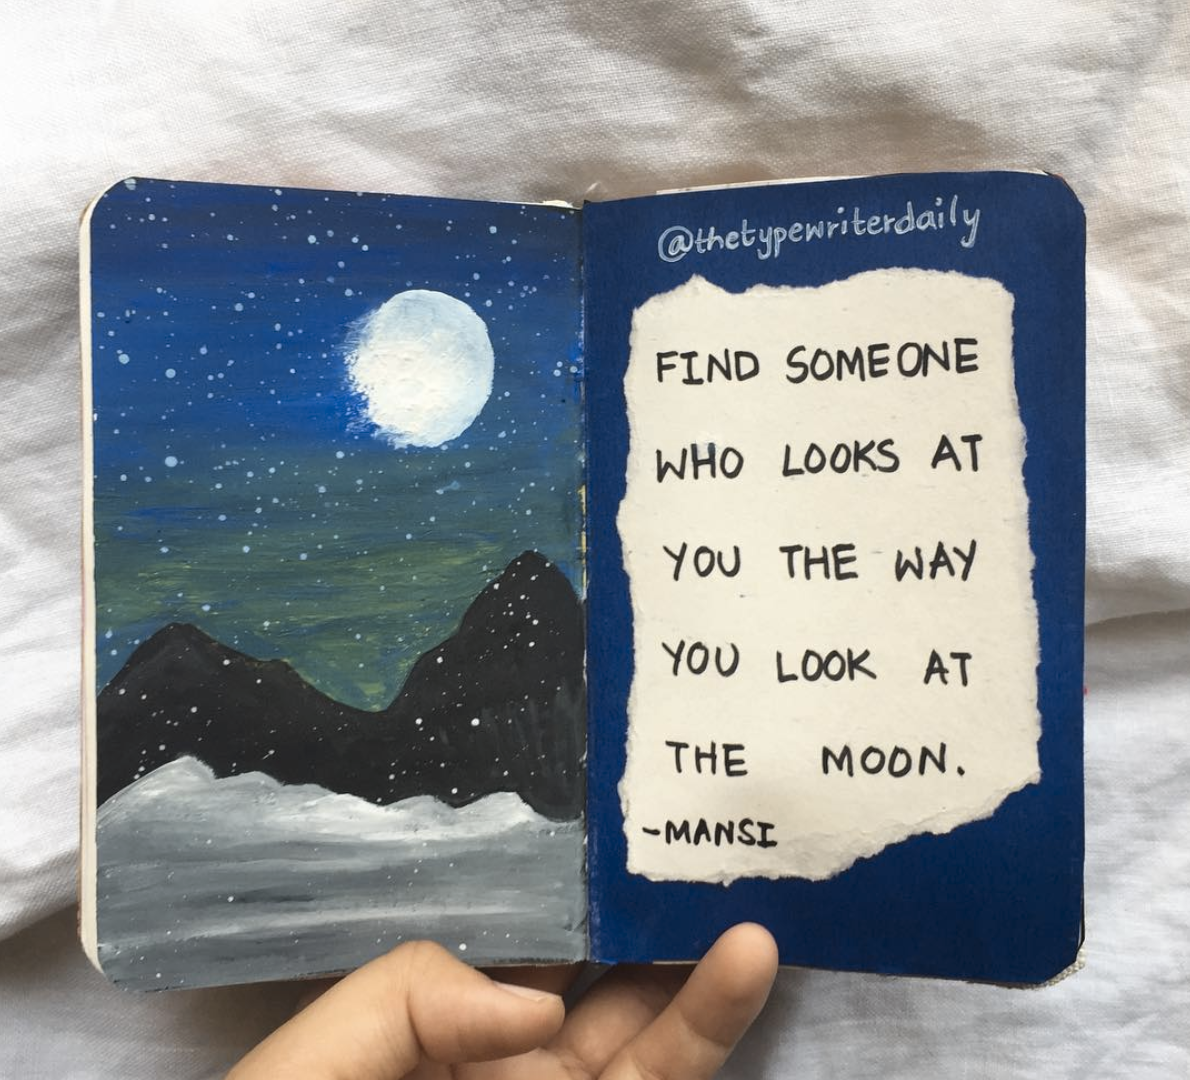 @thetypewriterdaily
FIND SOMEONE
WHO LOOKS AT
YOU THE WAY
YOU LOOK AT
THE MOON.
-MANSI